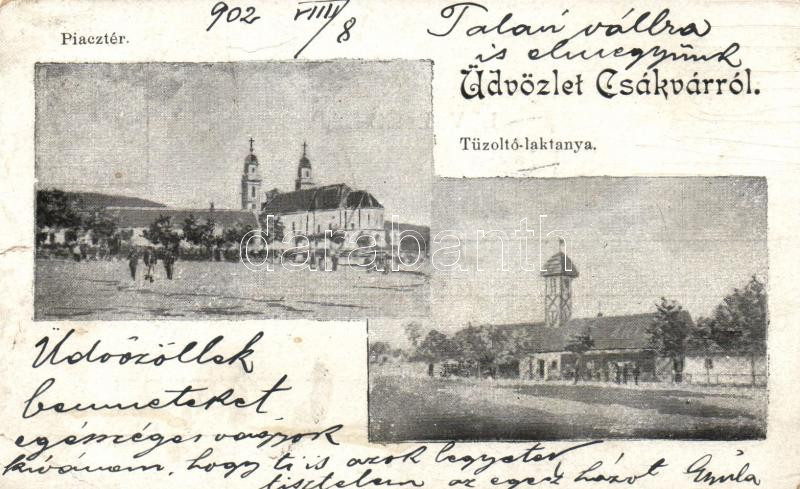 902 VIII/8
Talán vállra
is elmegyünk
Piacztér.
Üdvözlet Csákvárról.
Tűzoltó-laktanya.
darabanth
Üdvözöllek
benneteket
egészséges vagyok
kivánom, hogy ti is azok legyetek
tisztelem az egész házat Gyula